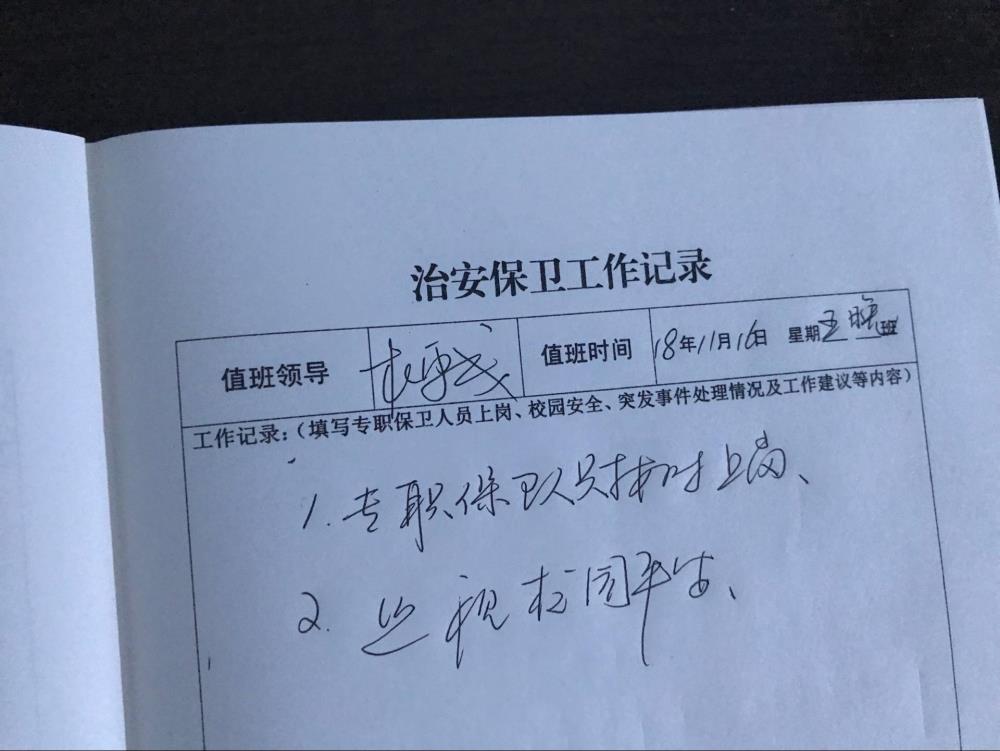 治安保卫工作记录
值班领导 值班时间 18年11月16日 星期五 晚班
工作记录:(填写专职保卫人员上岗、校园安全、突发事件处理情况及工作建议等内容)
1. 专职保卫人员按时上岗、
2. 巡视校园平安、